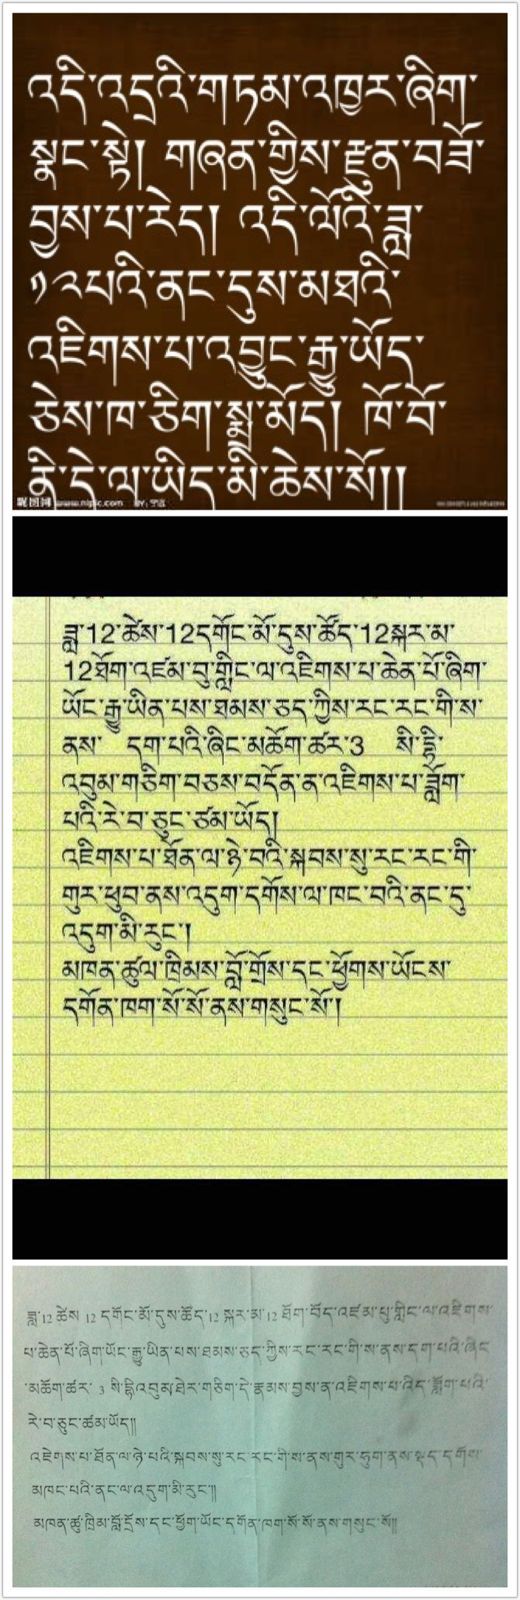 འདི་འདྲའི་གཏམ་འཁྱར་ཞིག་
སྣང་སྟེ། གཞན་གྱིས་རྫུན་བཟོ་
བྱས་པ་རེད། འདི་ལོའི་ཟླ་
༡༢པའི་ནང་དུས་མཐའི་
འཇིགས་པ་འབྱུང་རྒྱུ་ཡོད་
ཅེས་ཁ་ཅིག་སྨྲ་མོད། ཁོ་བོ་
ནི་དེ་ལ་ཡིད་མི་ཆེས་སོ།།
昵图网 www.nipic.com
ཟླ་12་ཚེས་12དགོང་མོ་དུས་ཚོད་12སྐར་མ་
12ཐོག་འཛམ་བུ་གླིང་ལ་འཇིགས་པ་ཆེན་པོ་ཞིག་
ཡོང་རྒྱུ་ཡིན་པས་ཐམས་ཅད་ཀྱིས་རང་རང་གི་ས་
ནས་ དག་པའི་ཞིང་མཆོག་ཚར་3 སི་ཌྷི་
འབུམ་གཅིག་བཅས་བདོན་ན་འཇིགས་པ་ཟློག་
པའི་རེ་བ་ཅུང་ཙམ་ཡོད།
འཇིགས་པ་ཐོན་ལ་ཉེ་བའི་སྐབས་སུ་རང་རང་གི་
གུར་ཕུབ་ནས་འདུག་དགོས་ལ་ཁང་བའི་ནང་དུ་
འདུག་མི་རུང་།
མཁན་ཚུལ་ཁྲིམས་བློ་གྲོས་དང་ཕྱོགས་ཡོངས་
དགོན་ཁག་སོ་སོ་ནས་གསུང་སོ་།
ཟླ་12 ཚེས 12 དགོང་མོ་དུས་ཚོད་12 སྐར་མ་12 ཐོག་བོད་འཛམ་བུ་གླིང་ལ་འཇིགས་
པ་ཆེན་པོ་ཞིག་ཡོང་རྒྱུ་ཡིན་པས་ཐམས་ཅད་ཀྱིས་རང་རང་གི་ས་ནས་དག་པའི་ཞིང་
མཆོག་ཚར་ 3 སི་ཌྷི་འབུམ་ཐེར་གཅིག་དེ་རྣམས་བྱས་ན་འཇིགས་པ་འདི་ཟློག་པའི་
རེ་བ་ཅུང་ཚམ་ཡོད།།
འཇིགས་པ་ཐོན་ལ་ཉེ་པའི་སྐབས་སུ་རང་རང་གི་ས་ནས་གུར་ནས་སྡད་དགོས་
མཁང་པའི་ནང་ལ་འདུག་མི་རུང་།།
མཁན་ཚུ་ཁྲིམ་བློ་དང་ཕྱོག་ཡོང་དགོན་ཁག་སོ་སོ་ནས་གསུང་སོ།།